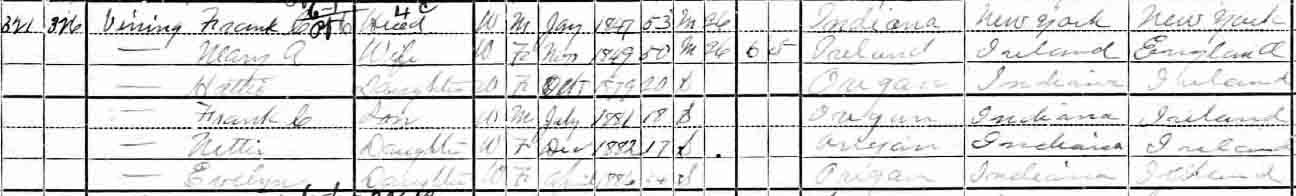 321 326 Vining Frank C Head W M Jay 1847 53 M 26 Indiana New York New York
— Mary A Wife W F Nov 1849 50 M 26 6 5 Ireland Ireland England
— Hattie Daughter W F Oct 1879 20 S Oregon Indiana Ireland
— Frank C Son W M July 1881 18 S Oregon Indiana Ireland
— Nettie Daughter W F Dec 1882 17 S Oregon Indiana Ireland
— Evelyn Daughter W F April 1886 14 S Oregon Indiana Ireland